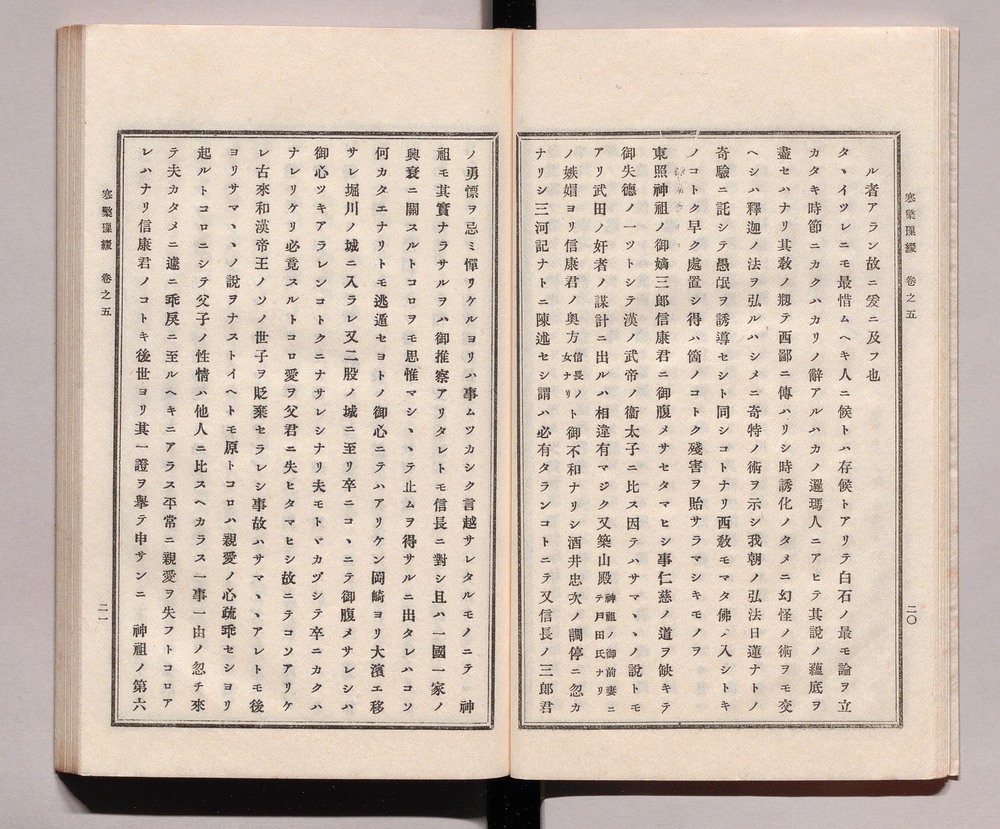 寒檠璅綴　卷之五
二〇
ル者アラン故ニ爰ニ及フ也
タヽイツレニモ最惜ムヘキ人ニ候トハ存候トアリテ白石ノ最モ論ヲ立
カタキ時節ニカクハカリノ辭アルハカノ邏瑪人ニアヒテ其說ノ蘊底ヲ
盡セハナリ其敎ノ剏テ西鄙ニ傳ハリシ時誘化ノタメニ幻怪ノ術ヲモ交
ヘシハ釋迦ノ法ヲ弘ルハシメニ奇特ノ術ヲ示シ我朝ノ弘法日蓮ナトノ
奇驗ニ託シテ愚氓ヲ誘導セシト同シコトナリ西敎モマタ佛ノ入シトキ
ノコトク早ク處置シ得ハ箇ノコトク殘害ヲ貽サラマシキモノヲ
東照神祖ノ御嫡三郎信康君ニ御腹メサセタマヒシ事仁慈ノ道ヲ缺キテ
御失德ノ一ツトシテ漢ノ武帝ノ衞太子ニ比ス因テハサマヽヽノ說トモ
アリ武田ノ奸者ノ謀計ニ出ルハ相違有マジク又築山殿神祖ノ御前妻ニテ戶田氏ナリ
ノ嫉媢ヨリ信康君ノ奧方信長ノ女ナリト御不和ナリシ酒井忠次ノ調停ニ忽カ
ナリシ三河記ナトニ陳述セシ謂ハ必有タランコトニテ又信長ノ三郎君
ノ勇慓ヲ忌ミ憚リケルヨリハ事ムツカシク言越サレタルモノニテ　神
祖モ其實ナラサルヲハ御推察アリタレトモ信長ニ對シ且ハ一國一家ノ
興衰ニ關スルトコロヲモ思惟マシヽヽテ止ムヲ得サルニ出タレハコソ
何カタエナリトモ逃遁セヨトノ御心ニテハアリケン岡崎ヨリ大濱エ移
サレ堀川ノ城ニ入ラレ又二股ノ城ニ至リ卒ニコヽニテ御腹メサレシハ
御心ツキアラレンコトクニナサレシナリ夫モトヾカヅシテ卒ニカクハ
ナレリケリ必竟スルトコロ愛ヲ父君ニ失ヒタマヒシ故ニテコソアリケ
レ古來和漢帝王ノソノ世子ヲ貶棄セラレシ事故ハサマヽヽアレトモ後
ヨリサマヽヽノ說ヲナストイヘトモ原トコロハ親愛ノ心疏乖セシヨリ
起ルトコロニシテ父子ノ性情ハ他人ニ比スヘカラス一事一由ノ忽チ來
テ夫カタメニ遽ニ乖戾ニ至ルヘキニアラス平常ニ親愛ヲ失フトコロア
レハナリ信康君ノコトキ後世ヨリ其一證ヲ擧テ申サンニ　神祖ノ第六
寒檠璅綴　卷之五
二一